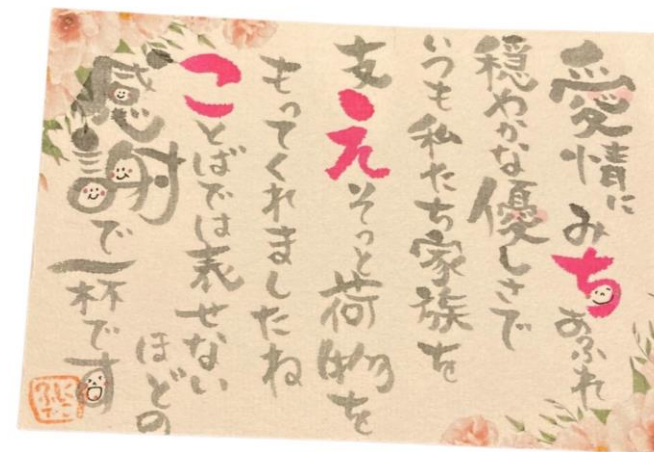 愛情にみちあふれ
穏やかな優しさで
いつも私たち家族を
支えそっと荷物を
もってくれましたね
ことばでは表せない
ほどの
感謝で一杯です